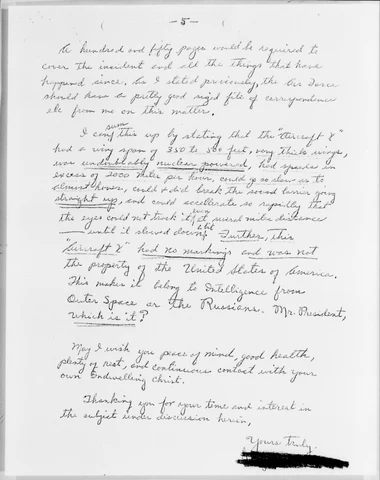 - 5 -
A hundred and fifty pages would be required to
cover the incident and all the things that have
happened since. As I stated previously, the Air Force
should have a pretty good sized file of correspondence
etc from me on this matter.
I can sum this up by stating that the "Aircraft X"
had a wing span of 350 to 380 feet, very thick wings,
was undeniably nuclear powered, had speeds in
excess of 2000 miles per hour, could go so slow as to
almost hover, could & did break the sound barrier going
straight up, and could accelerate so rapidly that
the eyes could not track it, even at several miles distance
— until it slowed down, that is. Further, this
"Aircraft X" had no markings and was not
the property of the United States of America.
This makes it belong to Intelligence from
Outer Space or the Russians. Mr. President,
which is it?
May I wish you peace of mind, good health,
plenty of rest, and continuous contact with your
own Indwelling Christ.
Thanking you for your time and interest in
the subject under discussion herein,
Yours truly,